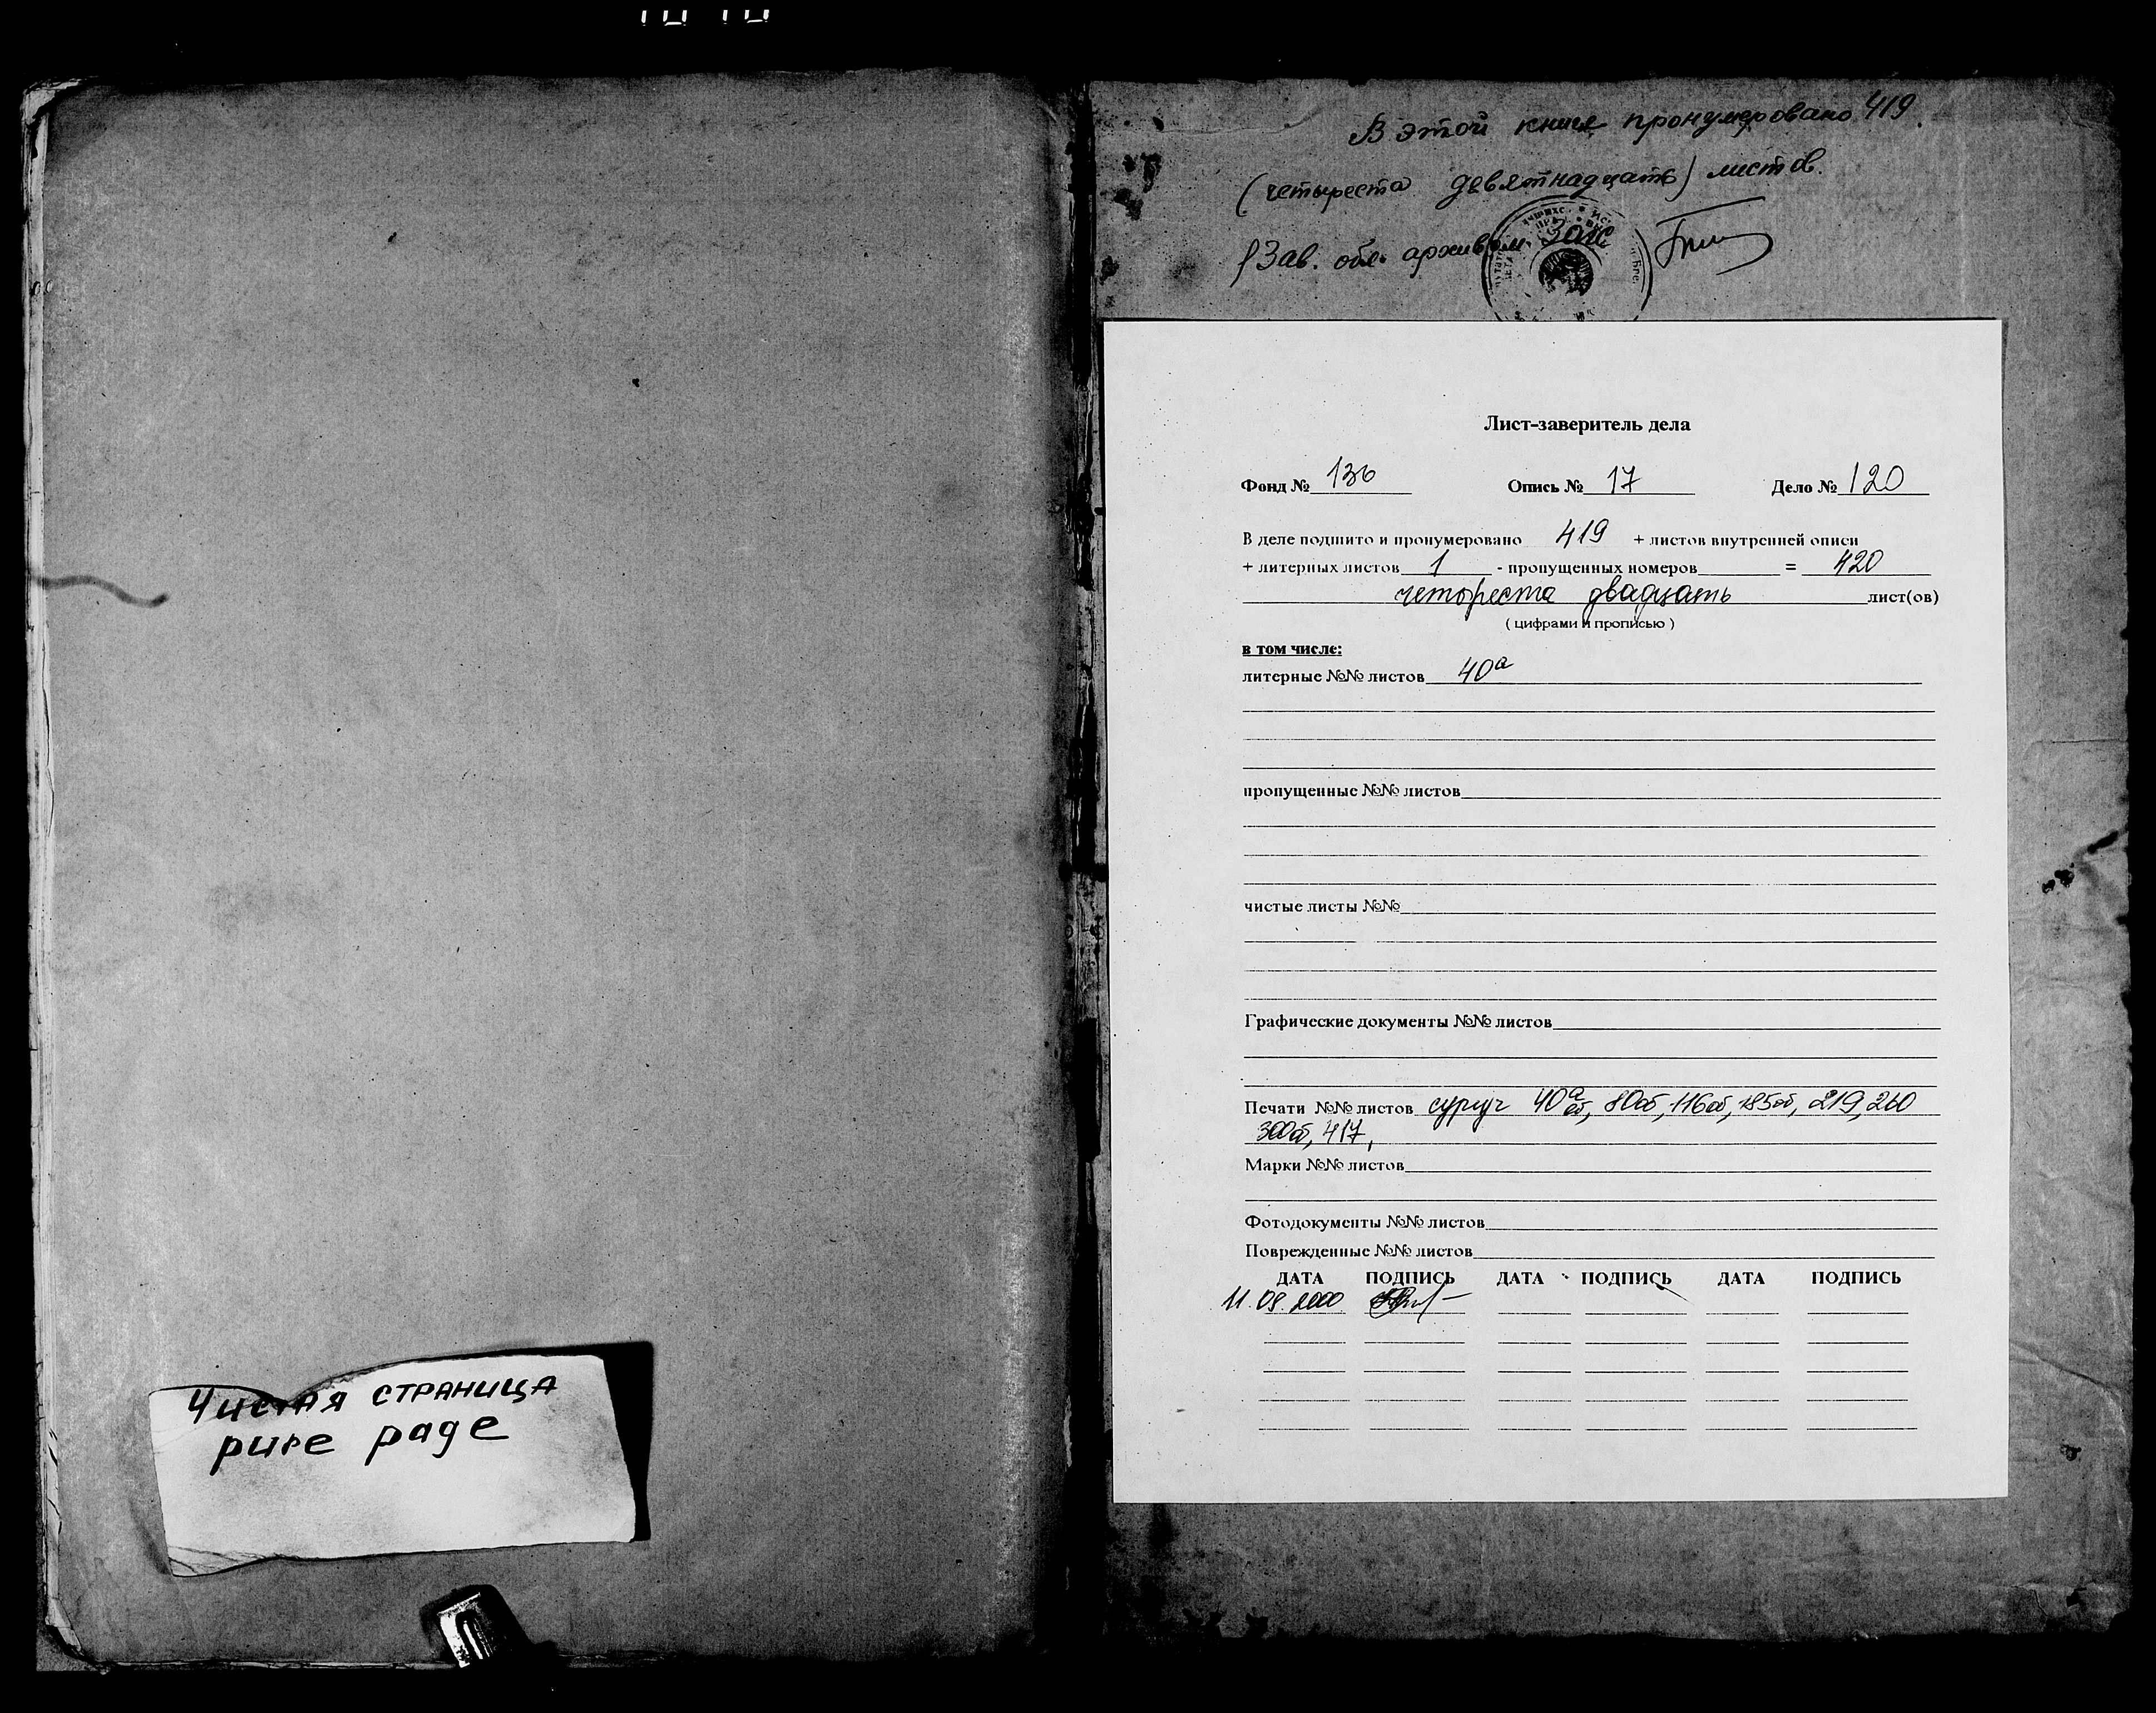 Чистая страница
pure page
В этой книге пронумеровано 419.
(четыреста девятнадцать) листов.
Зав. обл. архивом ЗАГС
Лист-заверитель дела
Фонд № 136 Опись № 17 Дело № 120
В деле подшито и пронумеровано 419 + листов внутренней описи
+ литерных листов 1 - пропущенных номеров = 420
четыреста двадцать лист(ов)
( цифрами и прописью )
в том числе:
литерные №№ листов 40а
пропущенные №№ листов
чистые листы №№
Графические документы №№ листов
Печати №№ листов сургуч 40а об, 80об, 116об, 185об, 219, 260
300об, 417,
Марки №№ листов
Фотодокументы №№ листов
Поврежденные №№ листов
ДАТА ПОДПИСЬ ДАТА ПОДПИСЬ ДАТА ПОДПИСЬ
11.09.2000